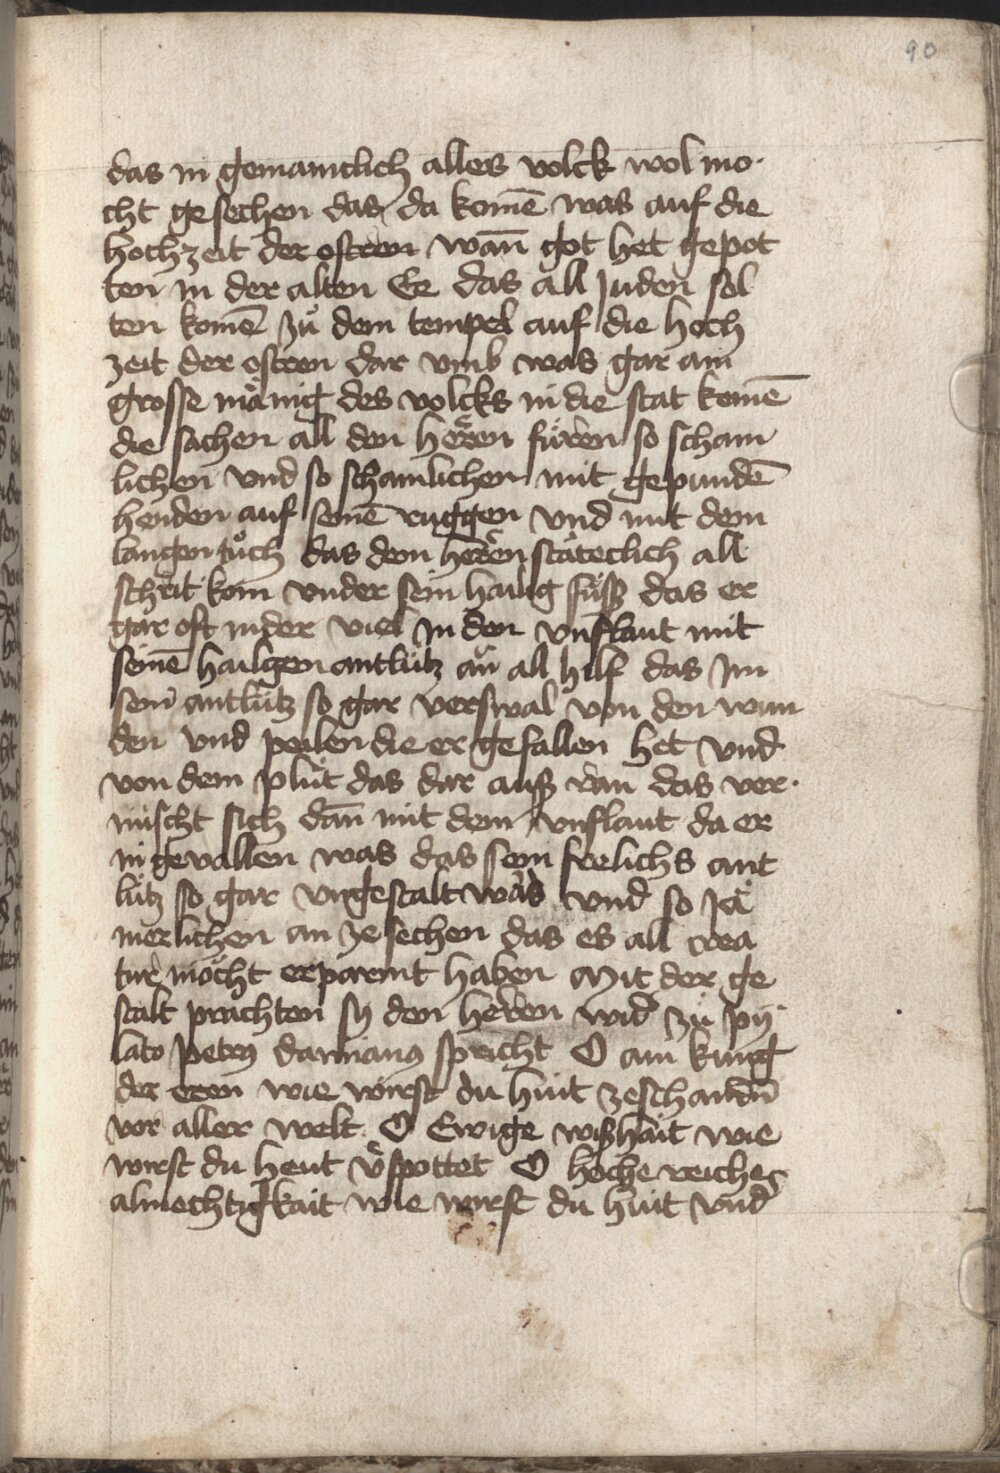 90
das in gemaintlich alles volck wol mo·
cht gesechen das da komē was auf die
hochzeit der ostren wañ got het gepot
ten in der alten Ee das all Juden sol
ten komē zů dem tempel auf die hoch
zeit der ostren dar vmb was gar ain
grosse mänig des volcks in die stat komē
die sachen all den herren füren so scham
lichen vnd so schamlichen mit gepundē
henden auf seinē ruggen vnd mit dem
langen tůch das dem herren stäteclich all
schrit kom vnder sein hailig füss das er
gar oft nider viel in den vnflaut mit
seinē hailgen antlütz añ all hilf das Im
sein antlütz so gar verswal von den wun
den vnd peilen die er gefallen het vnd
von dem plůt das dar auss ran das ver·
mischt sich dañ mit dem vnflaut da er
in gevallen was das sein frelichs ant
lütz so gar vngestalt was vnd so Jä
merlichen an ze sechen das es all crea
tur möcht erparmt haben Mit der ge
stalt prachten sy den herren wid zů py
lato petrus damianus spricht O ain kung
der eren wie wirst du hüit ze schandn̄
vor aller welt O Ewige wisshait wie
wirst du heut v̈spottet O hoche reiche
almechtigkait wie wirst du hüit vnd